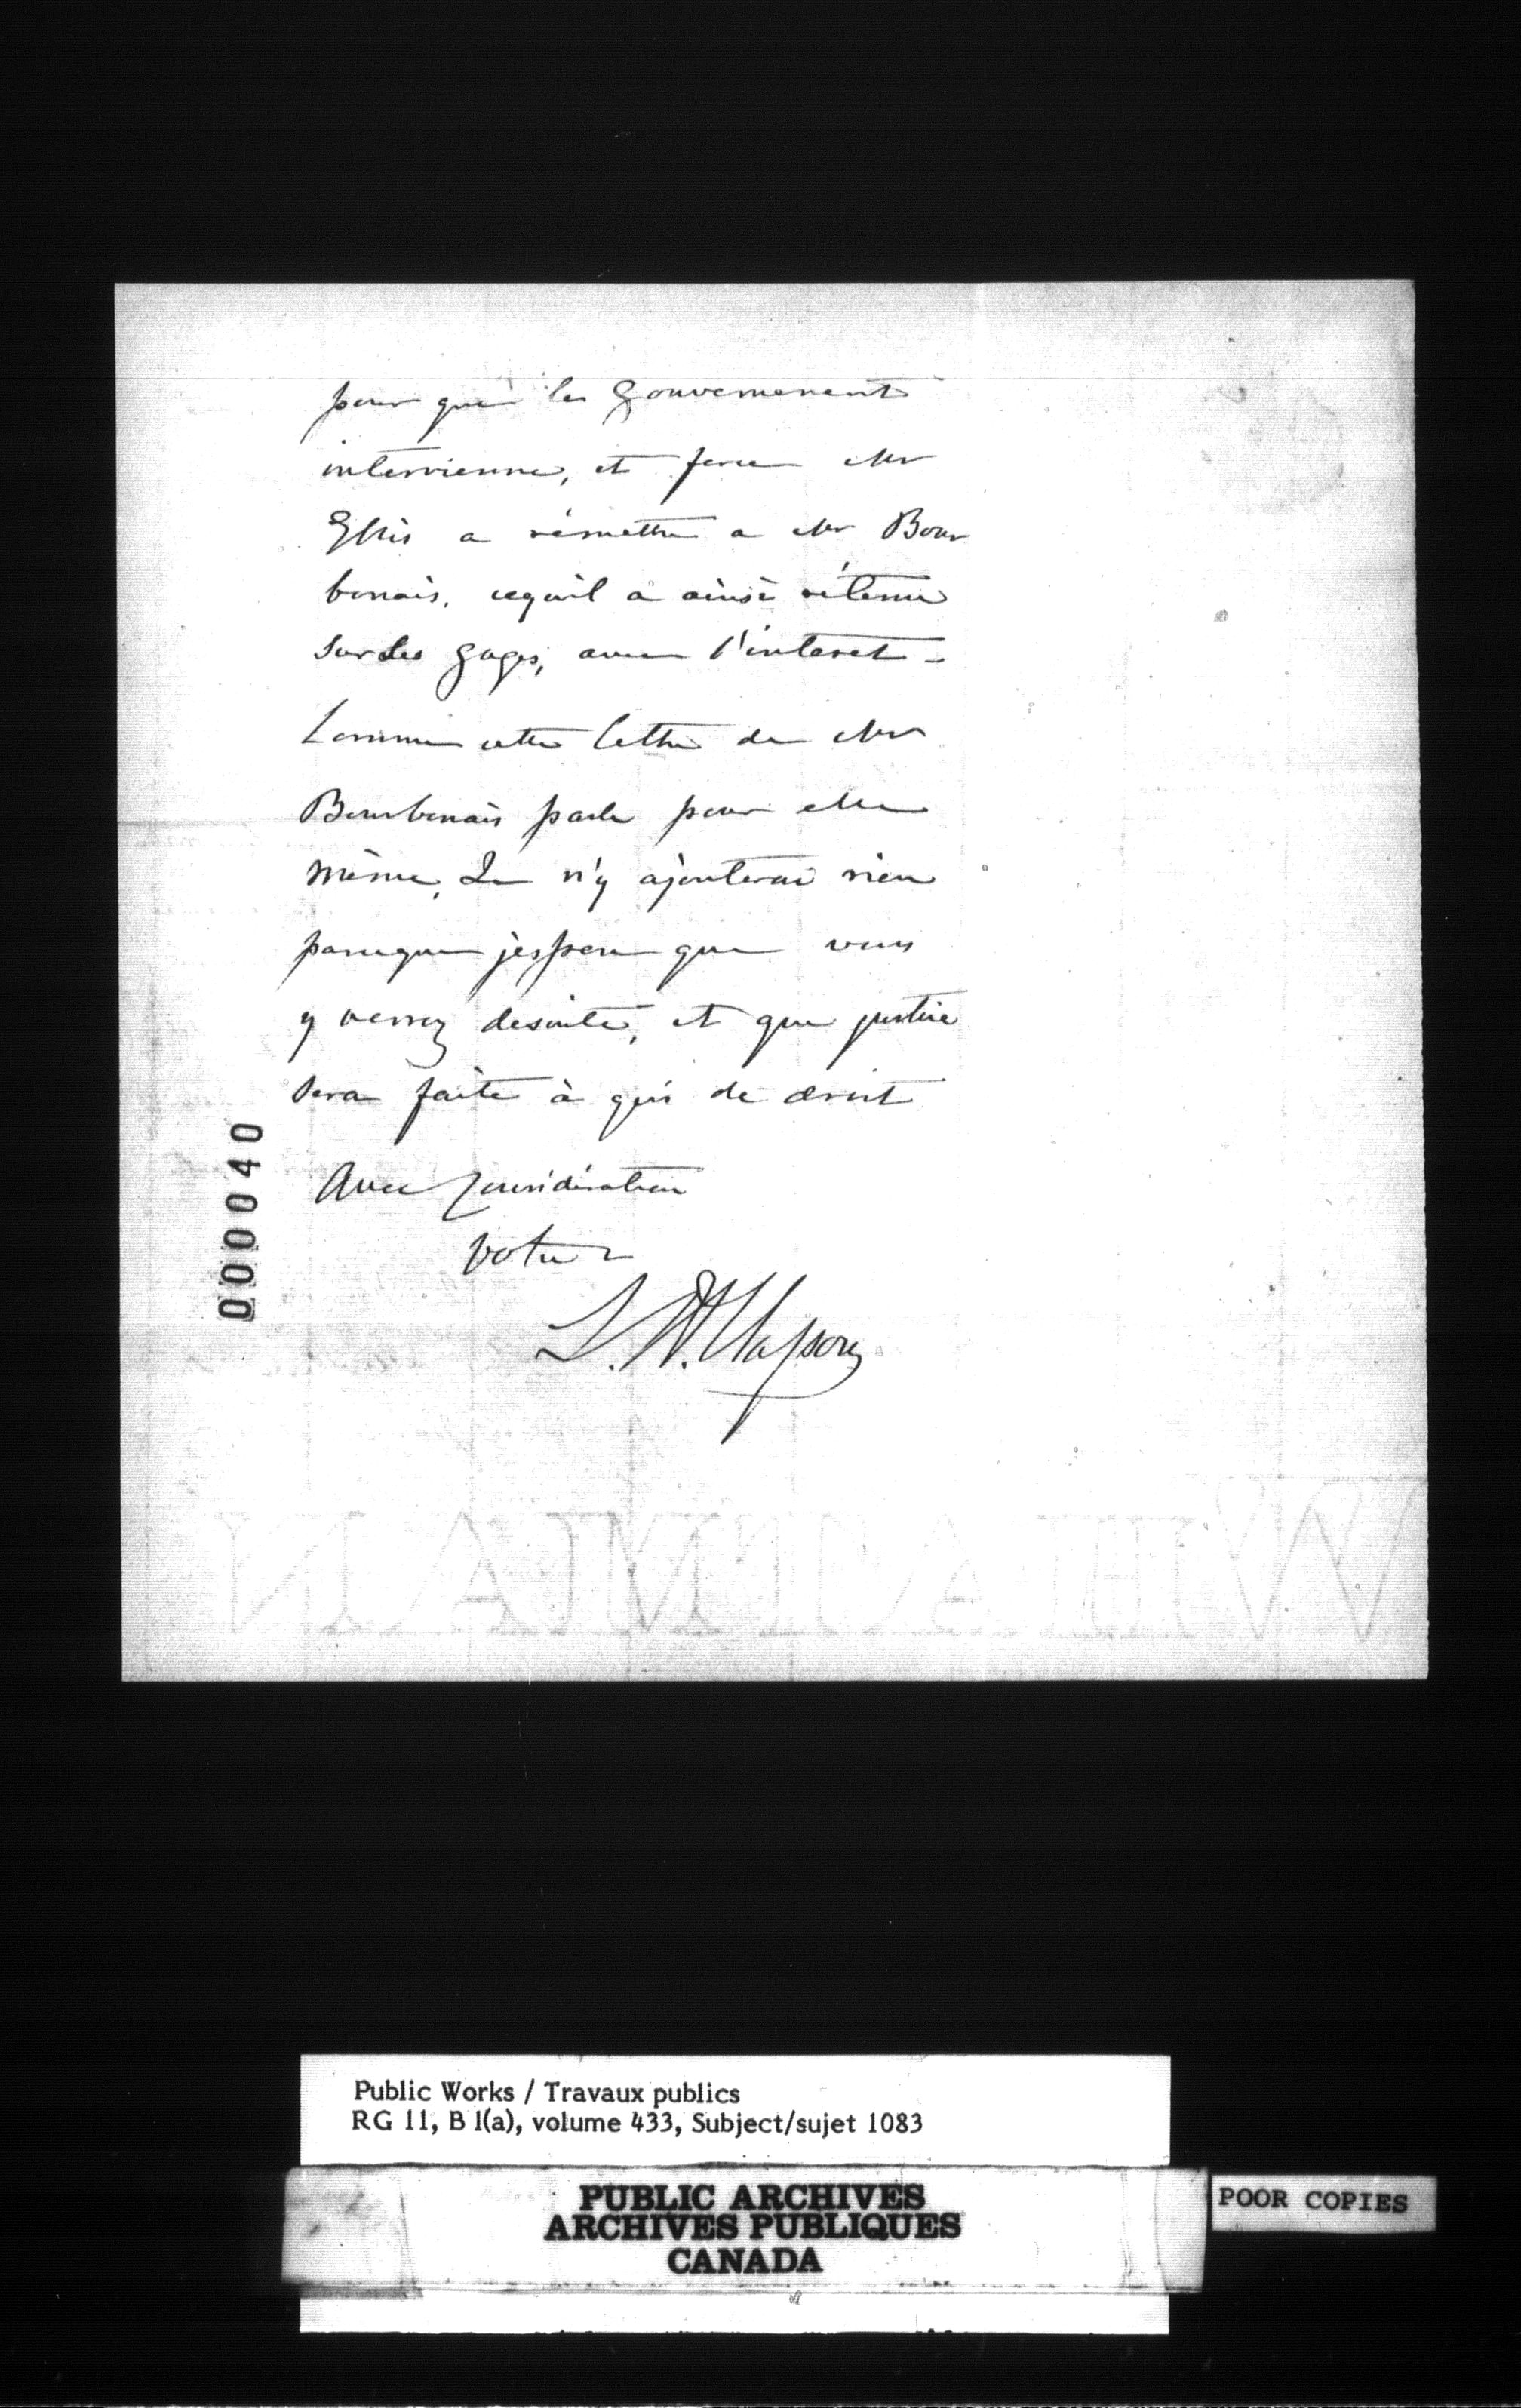 pour que le Gouvernement
intervienne, et force Mr
Ellis a rémettre a Mr Bour
bonais, cequ'il a ainsi rétenu
sur ses gages, avec l'interet -
Comme cette lettre de Mr
Bourbonais parle pour elle
même, Je n'y ajouterai rien
parceque j'espere que vous
y verrez desuite, et que justice
sera faite à qui de droit
Avec Considération
votre
L. R. Masson
000040
WHATMAN
Public Works / Travaux publics
RG 11, B 1(a), volume 433, Subject/sujet 1083
PUBLIC ARCHIVES
ARCHIVES PUBLIQUES
CANADA
POOR COPIES